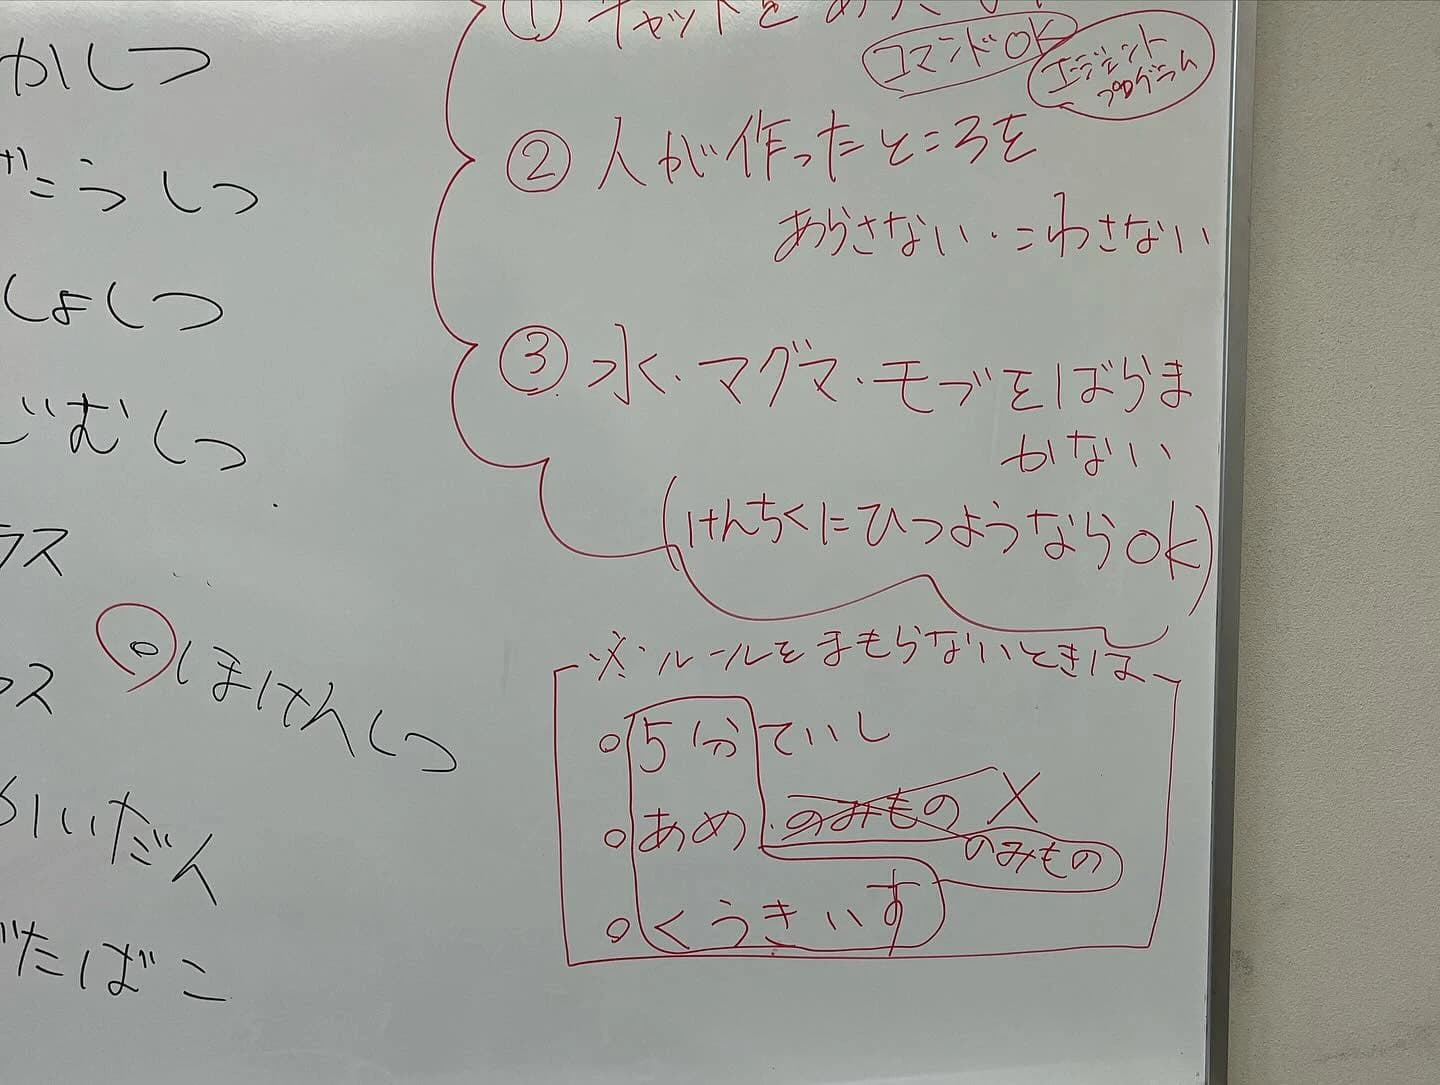 かしつ
こうしつ
しょしつ
じむしつ
ラス
ス
ほけんしつ
かいだん
げたばこ
① チャットを
コマンドOK
エージェント
プログラム
② 人が作ったところを
あらさない・こわさない
③ 水・マグマ・モブをばらま
かない
(けんちくにひつようならOK)
※ルールをまもらないときは
○5分ていし
○あめ のみもの X
のみもの
○くうきいす